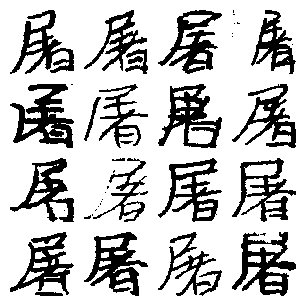 屠屠屠屠
屠屠屠屠
屠屠屠屠
屠屠屠屠